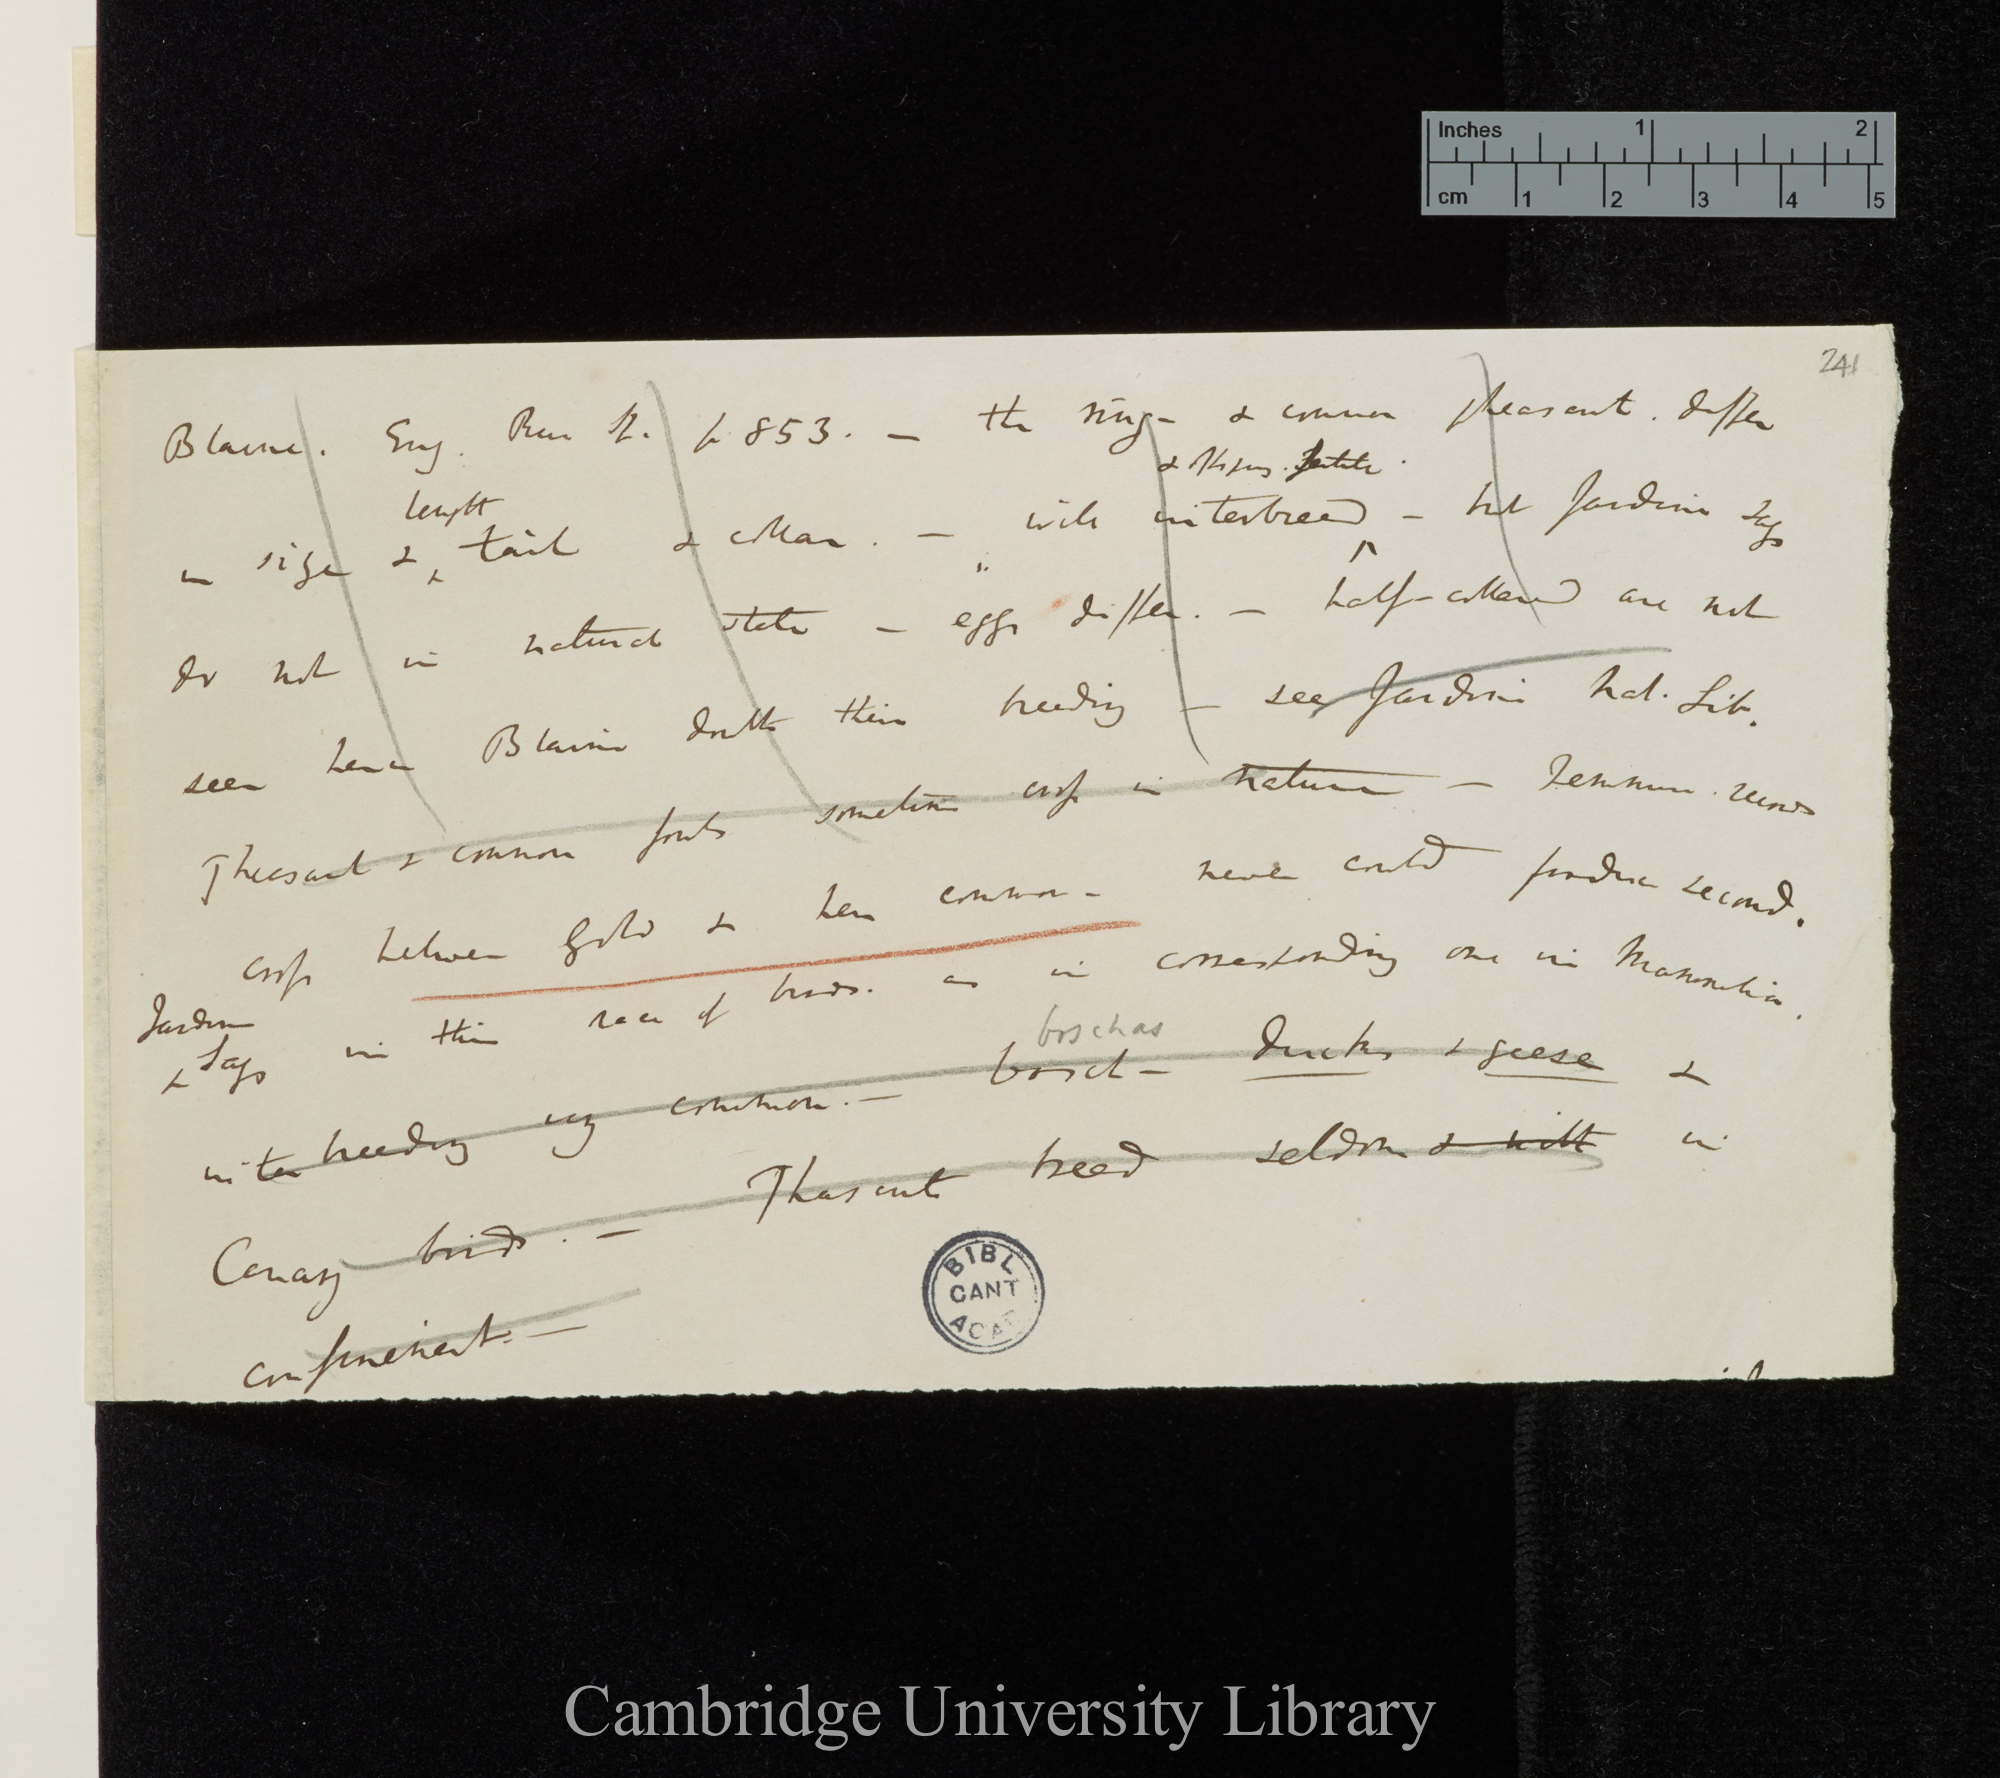 Inches 1 2
cm 1 2 3 4 5
241
Blaine. Ency. Rur Sp. p 853. — The ring- & common pheasant. differ
in size & length tail & collar. — will interbreed & prog. fertile. — but Jardine says
do not in natural state — eggs differ. — half-collared are not
seen hence Blaine doubts their breeding — see Jardine Nat. Lib.
Pheasant & common fowls sometimes cross in nature — Temmin. records
cross between Gold & hen common- never could produce second.
Jardine says in this race of birds. as in corresponding one in Mammalia.
interbreeding very common. — bosch- boschas Ducks & geese &
Canary birds. — Pheasants breed seldom & with in
confinement. —
BIBL
CANT
ACAD
Cambridge University Library